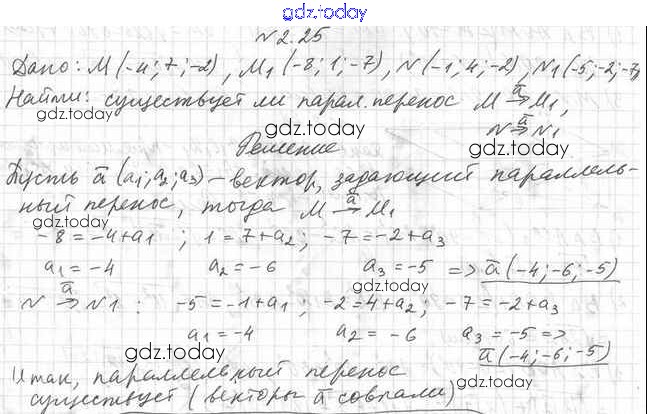 gdz.today
N2.25
Дано: M(-4; 7; -2), M1(-8; 1; -7), N(-1; 4; -2), N1(-5; -2; -7)
Найти: существует ли парал. перенос M →ā M1,
gdz.today gdz.today
N →ā N1
gdz.today
Решение
Пусть ā (a1; a2; a3) – вектор, задающий параллель-
ный перенос, тогда M →ā M1
gdz.today
-8 = -4+a1 ; 1 = 7+a2 ; -7 = -2+a3
a1 = -4 a2 = -6 a3 = -5 => ā(-4; -6; -5)
gdz.today
N →ā N1 : -5 = -1+a1 ; -2 = 4+a2 ; -7 = -2+a3
a1 = -4 a2 = -6 a3 = -5 =>
gdz.today
ā(-4; -6; -5)
Итак, параллельный перенос
gdz.today gdz.today
существует (векторы ā совпали)